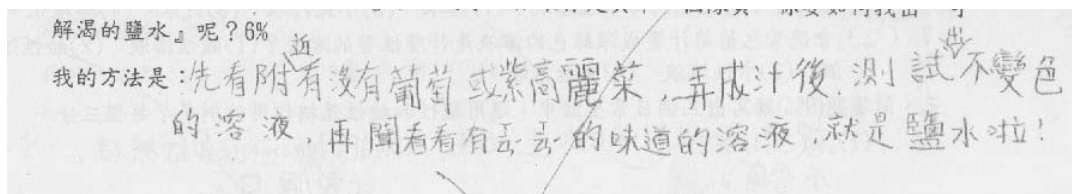 解渴的鹽水』呢？6%
我的方法是：先看附近有沒有葡萄或紫高麗菜，弄成汁後，測試出不變色
的溶液，再聞看看有ㄙㄙ的味道的溶液，就是鹽水啦！